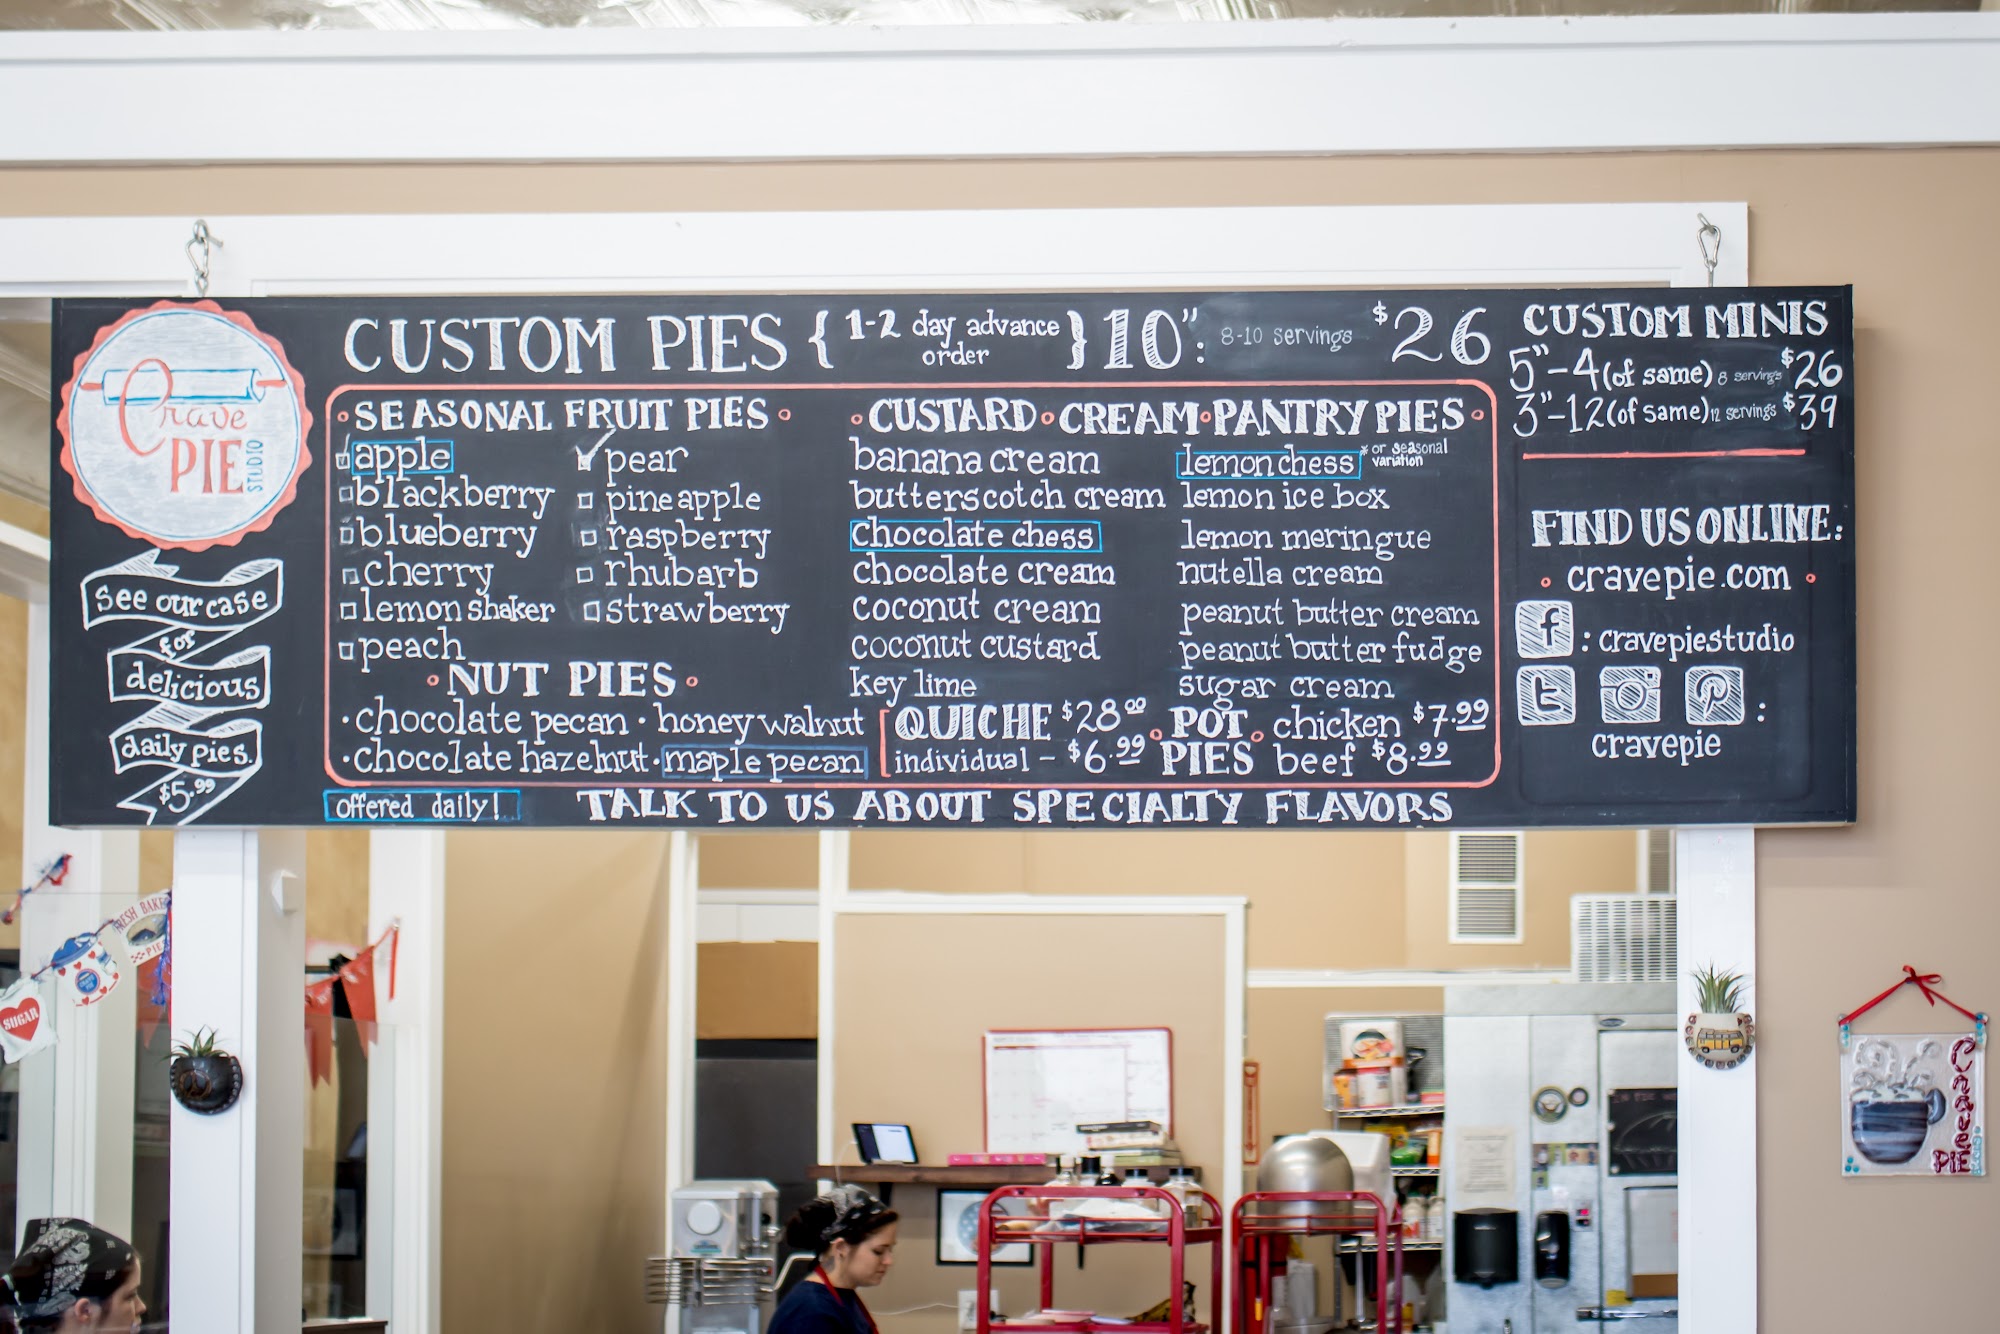 Crave
PIE
STUDIO
See our case
for
delicious
daily pies.
$5.99
CUSTOM PIES { 1-2 day advance order } 10": 8-10 servings $26
• SEASONAL FRUIT PIES •
apple
blackberry
blueberry
cherry
lemon shaker
peach
pear
pineapple
raspberry
rhubarb
strawberry
• NUT PIES •
• chocolate pecan • honey walnut
• chocolate hazelnut • maple pecan
• CUSTARD • CREAM • PANTRY PIES •
banana cream
butterscotch cream
chocolate chess
chocolate cream
coconut cream
coconut custard
key lime
lemon chess * or seasonal variation
lemon ice box
lemon meringue
nutella cream
peanut butter cream
peanut butter fudge
sugar cream
QUICHE $28.00
individual - $6.99
• POT • PIES
chicken $7.99
beef $8.99
offered daily!
TALK TO US ABOUT SPECIALTY FLAVORS
CUSTOM MINIS
5" - 4 (of same) 8 servings $26
3" - 12 (of same) 12 servings $39
FIND US ONLINE:
• cravepie.com •
f : cravepiestudio
t P :
cravepie
FRESH BAKED
PIES
SUGAR
Crave
PIE